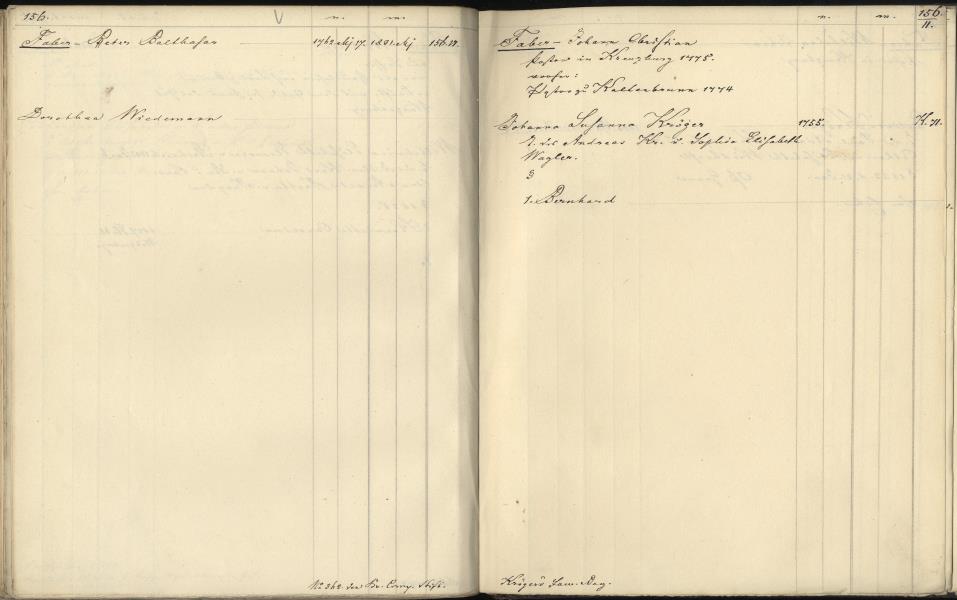 156.
n. m.
Faber - Peter Balthasar 1762 Mj 17. 1821 Mj 156. V.
Dorothea Wiedemann
No 362. der Br. Comp. Stift.
n. m. 156.
II.
Faber - Johann Christian
Pastor in Kreuzburg 1775.
vorher:
zu Kaltenbrunn 1774
Johanna Susanna Kröger 1755. K. II.
T. des Andreas Kr. u. Sophia Elisabeth
Wagler.
3
1. Bernhard
Kröger's Fam. Reg.